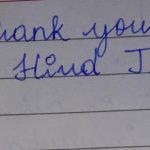 hank you
Hind J